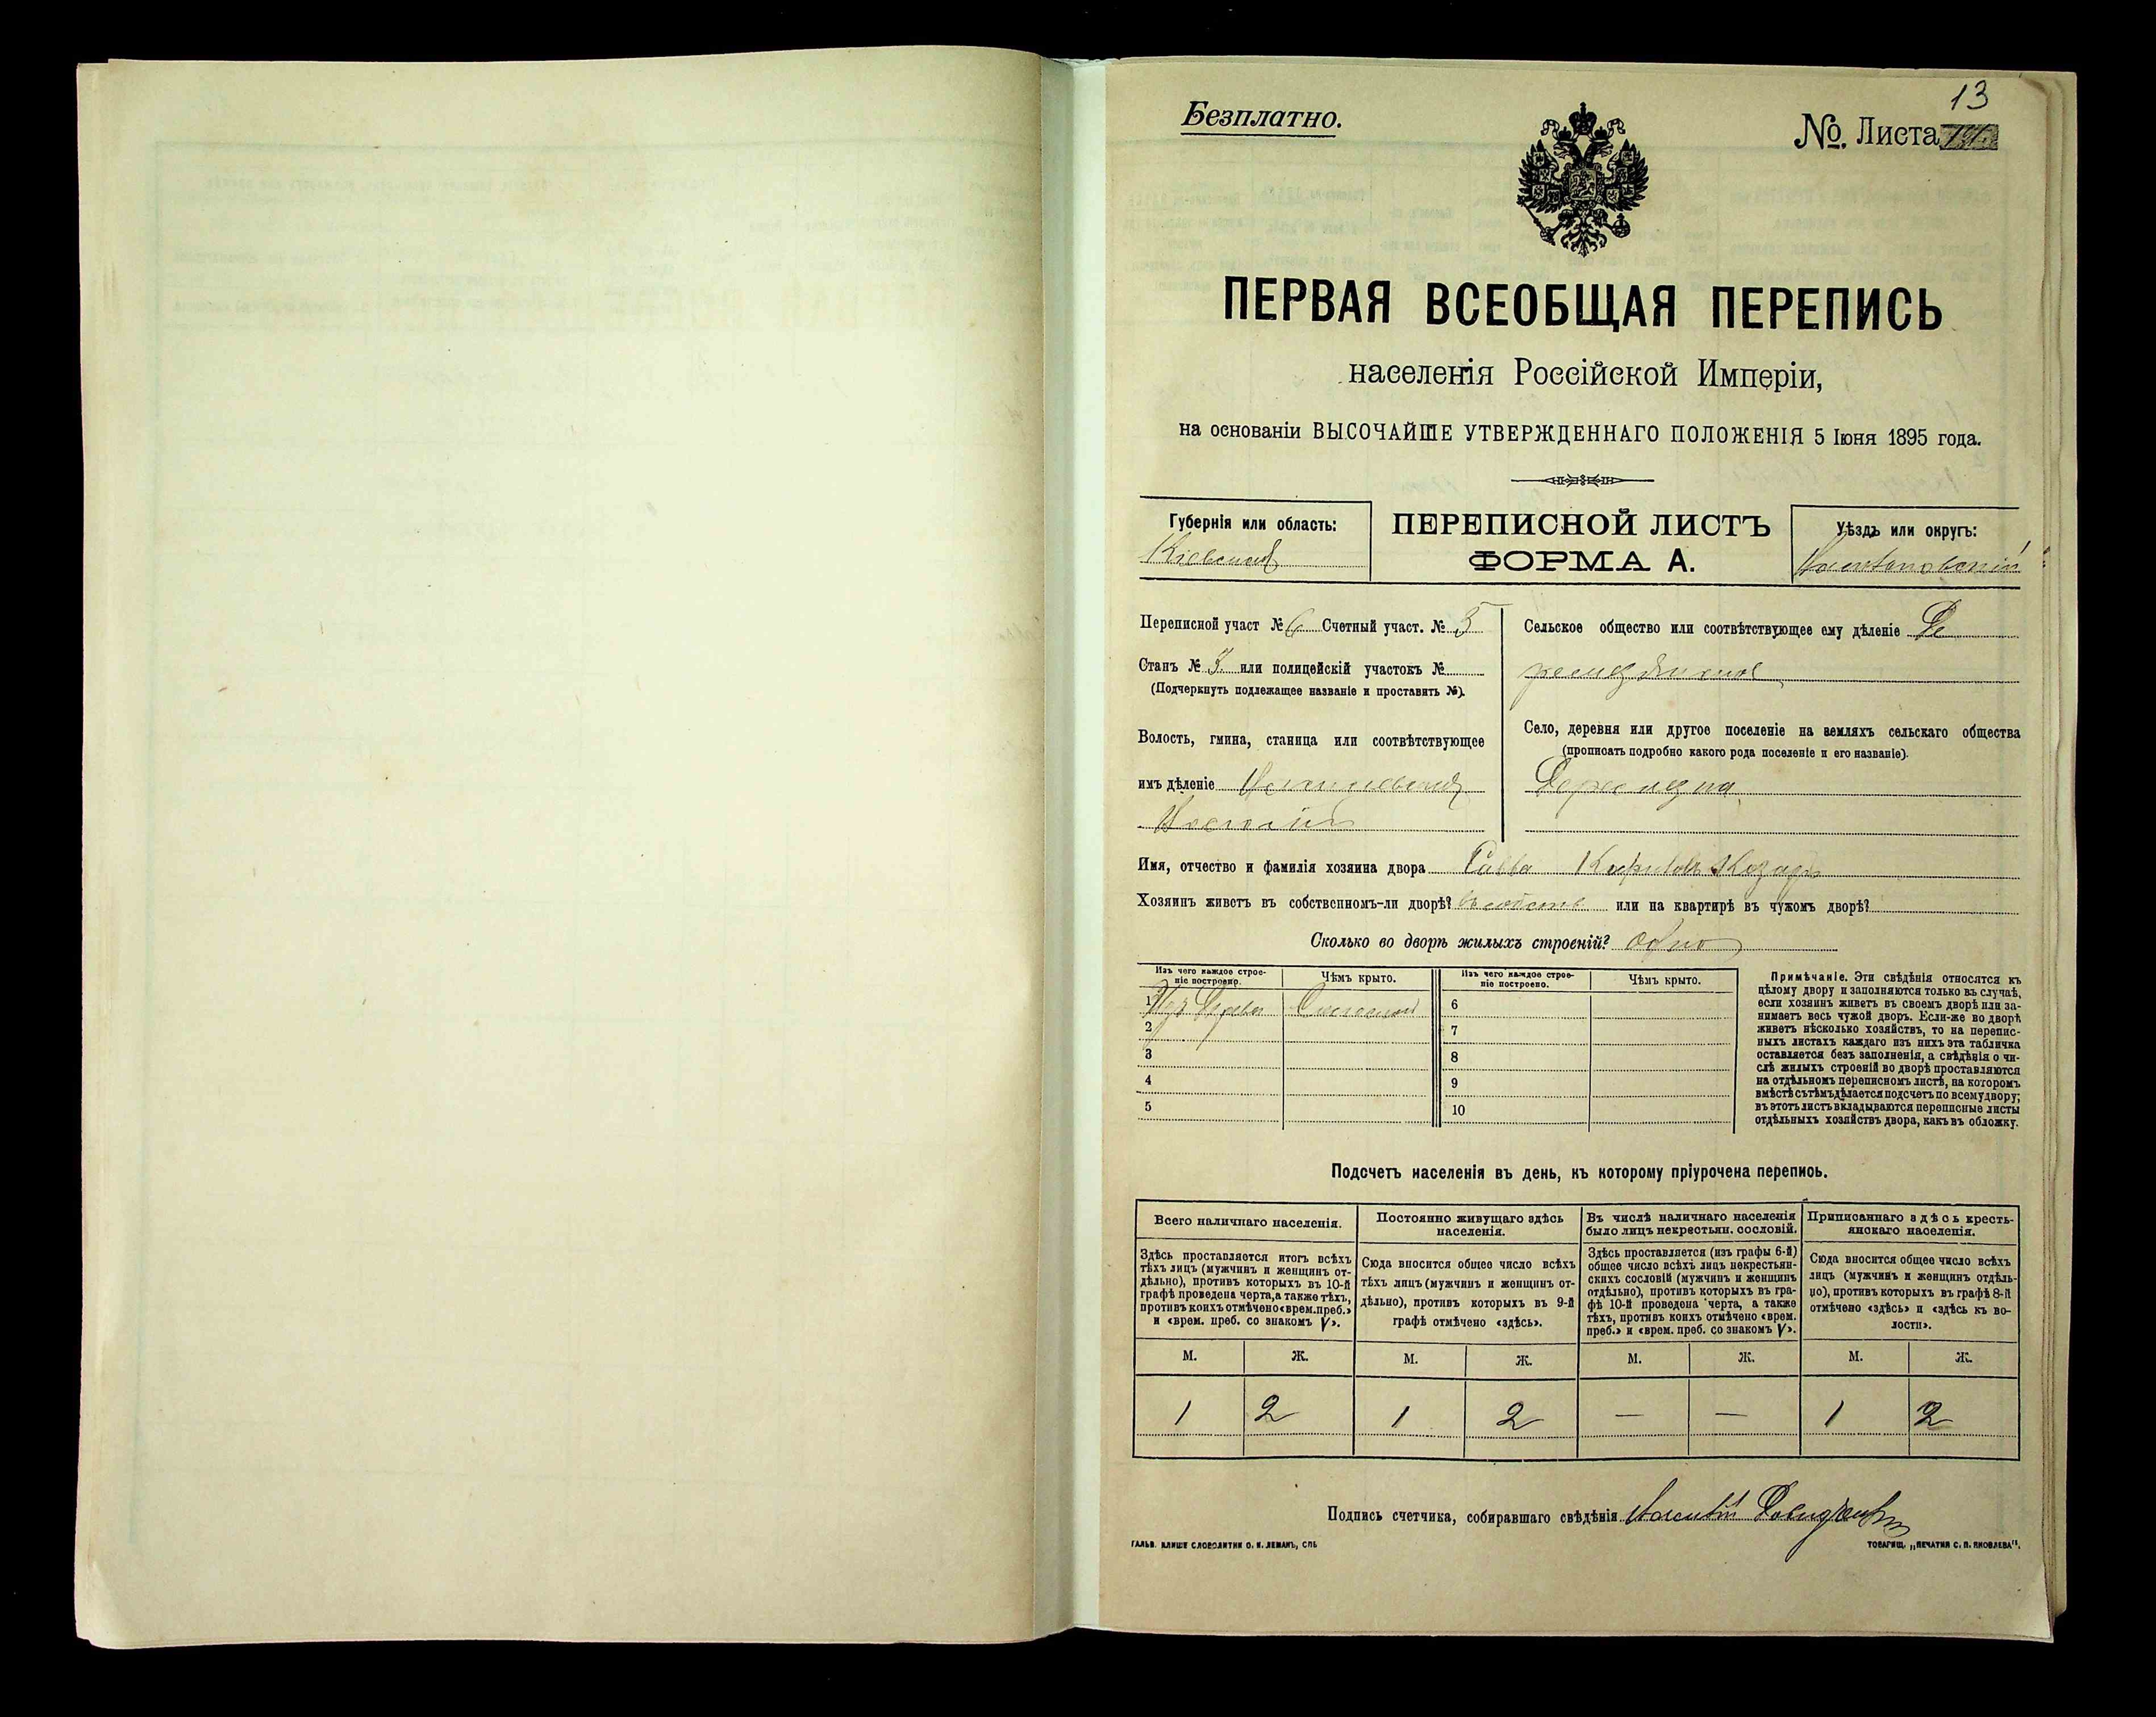 13
Безплатно.
№ Листа
ПЕРВАЯ ВСЕОБЩАЯ ПЕРЕПИСЬ
населенія Россійской Имперіи,
на основаніи ВЫСОЧАЙШЕ УТВЕРЖДЕННАГО ПОЛОЖЕНІЯ 5 Іюня 1895 года.
Губернія или область:
Кіевская
ПЕРЕПИСНОЙ ЛИСТЪ
ФОРМА А.
Уѣздъ или округъ:
Переписной участ № 6 Счетный участ. № 5
Станъ № 3. или полицейскій участокъ №
(Подчеркнуть подлежащее названіе и проставить №).
Волость, гмина, станица или соотвѣтствующее
имъ дѣленіе
Сельское общество или соотвѣтствующее ему дѣленіе Де
Село, деревня или другое поселеніе на земляхъ сельскаго общества
(прописать подробно какого рода поселеніе и его названіе).
Имя, отчество и фамилія хозяина двора Савва Карповъ Козаръ
Хозяинъ живетъ въ собственномъ-ли дворѣ? или на квартирѣ въ чужомъ дворѣ?
Сколько во дворѣ жилыхъ строеній? одно
Изъ чего каждое строе-
ніе построено.
Чѣмъ крыто.
Изъ чего каждое строе-
ніе построено.
Чѣмъ крыто.
1 Изъ Дерева Соломой
2
3
4
5
6
7
8
9
10
Примѣчаніе. Эти свѣдѣнія относятся къ
цѣлому двору и заполняются только въ случаѣ,
если хозяинъ живетъ въ своемъ дворѣ или за-
нимаетъ весь чужой дворъ. Если-же во дворѣ
живетъ нѣсколько хозяйствъ, то на перепис-
ныхъ листахъ каждаго изъ нихъ эта табличка
оставляется безъ заполненія, а свѣдѣнія о чи-
слѣ жилыхъ строеній во дворѣ проставляются
на отдѣльномъ переписномъ листѣ, на которомъ
вмѣстѣ съ тѣмъ дѣлается подсчетъ по всему двору;
въ этотъ листъ вкладываются переписные листы
отдѣльныхъ хозяйствъ двора, какъ въ обложку.
Подсчетъ населенія въ день, къ которому пріурочена перепись.
Всего наличнаго населенія.
Здѣсь проставляется итогъ всѣхъ
тѣхъ лицъ (мужчинъ и женщинъ от-
дѣльно), противъ которыхъ въ 10-й
графѣ проведена черта, а также тѣхъ,
противъ коихъ отмѣчено «врем. преб.»
и «врем. преб. со знакомъ V».
Постоянно живущаго здѣсь
населенія.
Сюда вносится общее число всѣхъ
тѣхъ лицъ (мужчинъ и женщинъ от-
дѣльно), противъ которыхъ въ 9-й
графѣ отмѣчено «здѣсь».
Въ числѣ наличнаго населенія
было лицъ некрестьян. сословій.
Здѣсь проставляется (изъ графы 6-й)
общее число всѣхъ лицъ некрестьян-
скихъ сословій (мужчинъ и женщинъ
отдѣльно), противъ которыхъ въ гра-
фѣ 10-й проведена черта, а также
тѣхъ, противъ коихъ отмѣчено «врем.
преб.» и «врем. преб. со знакомъ V».
Приписаннаго здѣсь кресть-
янскаго населенія.
Сюда вносится общее число всѣхъ
лицъ (мужчинъ и женщинъ отдѣль-
но), противъ которыхъ въ графѣ 8-й
отмѣчено «здѣсь» и «здѣсь къ во-
лости».
М. Ж. М. Ж. М. Ж. М. Ж.
1 2 1 2 — — 1 2
Подпись счетчика, собиравшаго свѣдѣнія
ГАЛЬВ. КЛИШЕ СЛОВОЛИТНИ О. И. ЛЕМАНЪ, СПБ
ТОВАРИЩ. „ПЕЧАТНЯ С. П. ЯКОВЛЕВА".